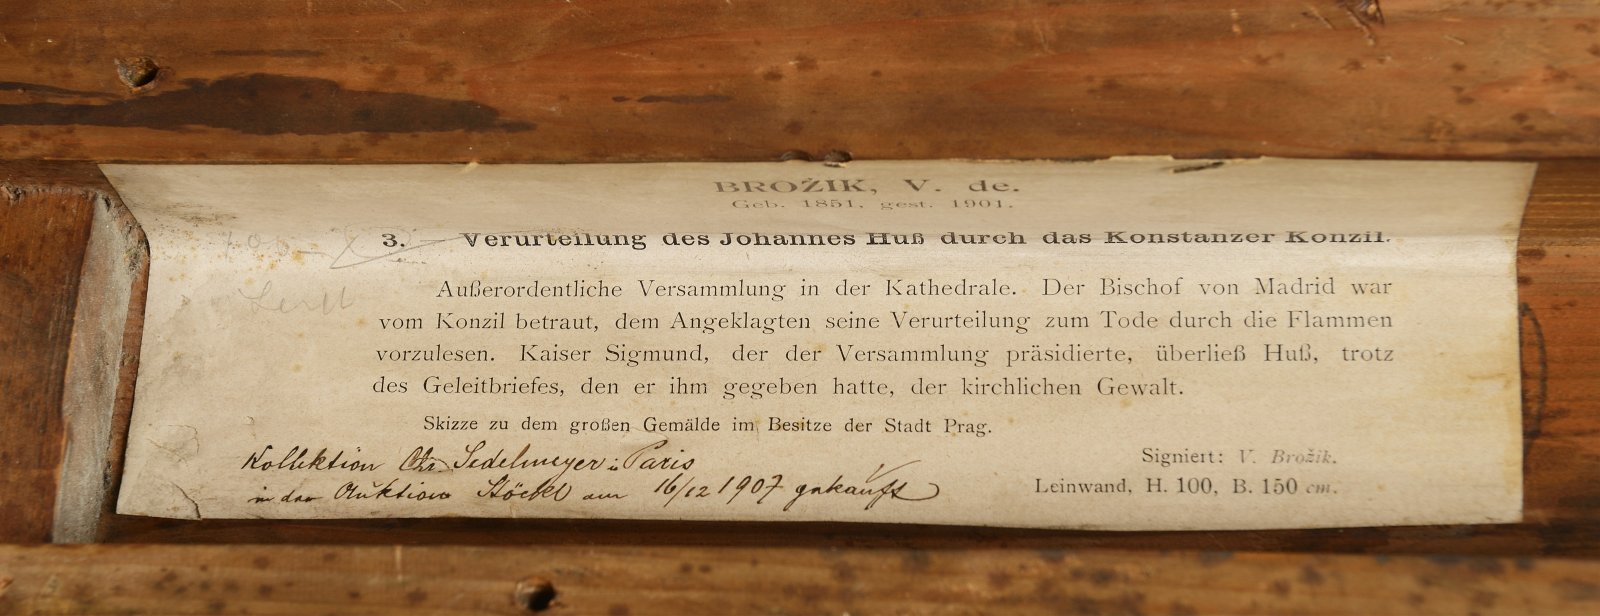 BROŽIK, V. de.
Geb. 1851, gest. 1901.
3. Verurteilung des Johannes Huß durch das Konstanzer Konzil.
Außerordentliche Versammlung in der Kathedrale. Der Bischof von Madrid war
vom Konzil betraut, dem Angeklagten seine Verurteilung zum Tode durch die Flammen
vorzulesen. Kaiser Sigmund, der der Versammlung präsidierte, überließ Huß, trotz
des Geleitbriefes, den er ihm gegeben hatte, der kirchlichen Gewalt.
Skizze zu dem großen Gemälde im Besitze der Stadt Prag.
Kollektion Chr Sedelmeyer in Paris
in der Auktion Stöckl am 16/12 1907 gekauft
Signiert: V. Brožik.
Leinwand, H. 100, B. 150 cm.